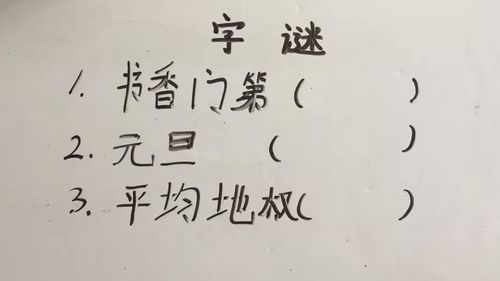 字谜
1. 书香门第 ( )
2. 元旦 ( )
3. 平均地权( )